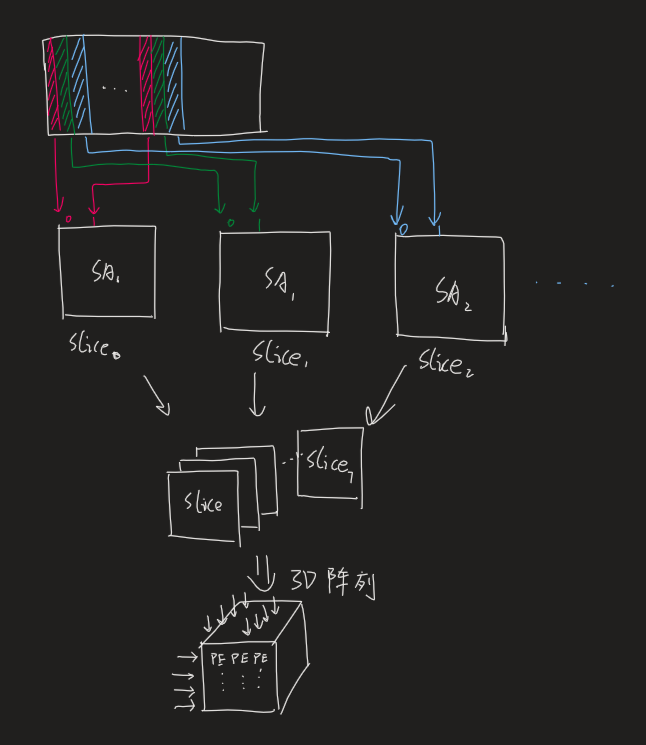 ...
0 1
0 1
0 1
SA₀
SA₁
SA₂
....
Slice₀
Slice₁
Slice₂
Slice
...
Slice₇
3D 阵列
PE PE PE